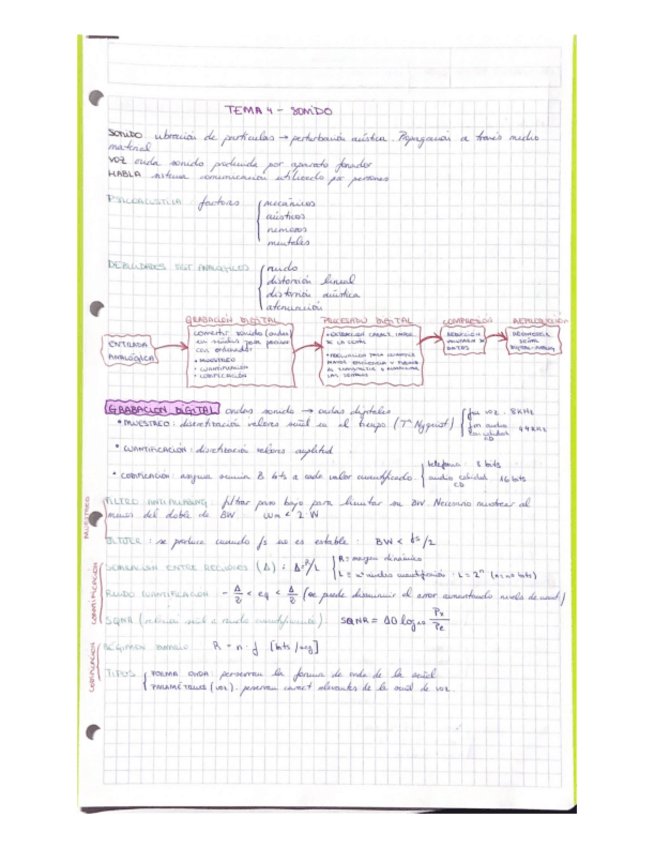 TEMA 4 - SONIDO
SONIDO vibración de partículas → perturbación acústica. Propagación a través medio
material
VOZ onda sonido producida por aparato fonador
HABLA sistema comunicación utilizado por personas
PSICOACUSTICA: factores
mecánicos
acústicos
nerviosos
mentales
DEBILIDADES SIST ANALÓGICOS
ruido
distorsión lineal
distorsión acústica
atenuación
GRABACIÓN DIGITAL PROCESADO DIGITAL COMPRESIÓN REPRODUCCIÓN
ENTRADA
ANALÓGICA
convertir sonido (ondas)
en
con ordenador
• MUESTREO
• CUANTIFICACIÓN
• CODIFICACIÓN
• EXTRACCIÓN CARACT.
DE LA
REDUCCIÓN
VOLUMEN DE
DATOS
SEÑAL
DIGITAL-ANALÓG
GRABACIÓN DIGITAL ondas sonido → ondas digitales
• MUESTREO: discretización valores señal en el tiempo (Tª Nyquist)
fm voz: 8KHz
fm audio
calidad
CD
44KHz
• CUANTIFICACIÓN: discretización valores amplitud
• CODIFICACIÓN: asigna número B bits a cada valor cuantificado.
telefonía: 8 bits
audio calidad
CD
16 bits
MUESTREO
FILTRO ANTIALIASING: filtrar paso bajo para limitar su BW. Necesario muestrear al
menos del doble de BW Wm < 2·W
JITTER: se produce cuando fs no es estable: BW < fs/2
CUANTIFICACIÓN
SEPARACIÓN ENTRE ESCALONES (Δ): Δ=R/L
R = margen dinámico
L = nº niveles cuantificación · L = 2ⁿ (n = nº bits)
RUIDO CUANTIFICACIÓN - Δ/2 < eq < Δ/2 (se puede disminuir el error aumentando niveles de cuant)
SQNR (relación señal a ruido cuantificación): SQNR = 10 log₁₀ Px/Pe
CODIFICACIÓN
RÉGIMEN BINARIO R = n · f [bits/seg]
TIPOS
FORMA ONDA: preservan la forma de onda de la señal
PARAMÉTRICOS (VOZ): preservan caract relevantes de la señal de voz.